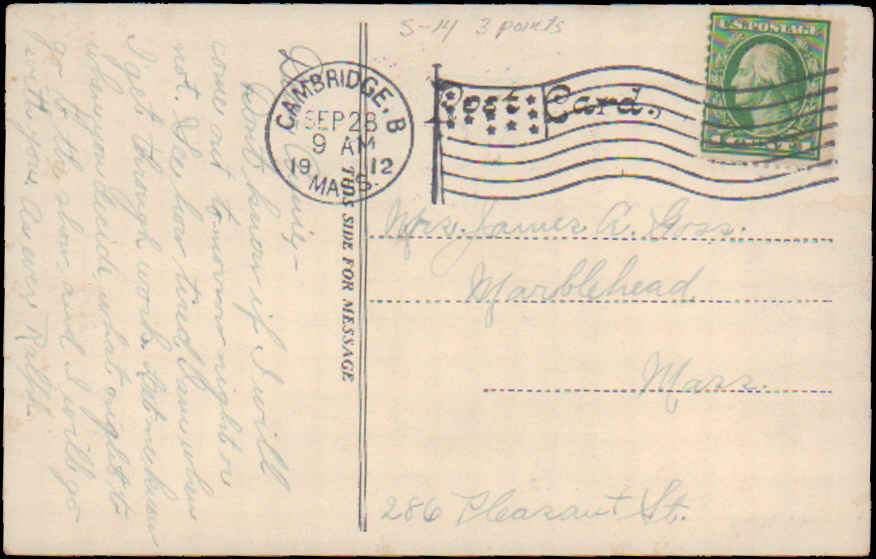 S-14 3 points
U.S. POSTAGE
CAMBRIDGE, B
SEP 28
9 AM
19 12
MASS.
Post Card.
THIS SIDE FOR MESSAGE
Mrs. James A. Goss.
Marblehead
Mass.
286 Pleasant St.
Dear
Don't know if I will
come out tomorrow night or
not. See how tired I am when
I get through work. Let me know
when you decide what night to
go to the show and I will go
with you. As ever Ralph.